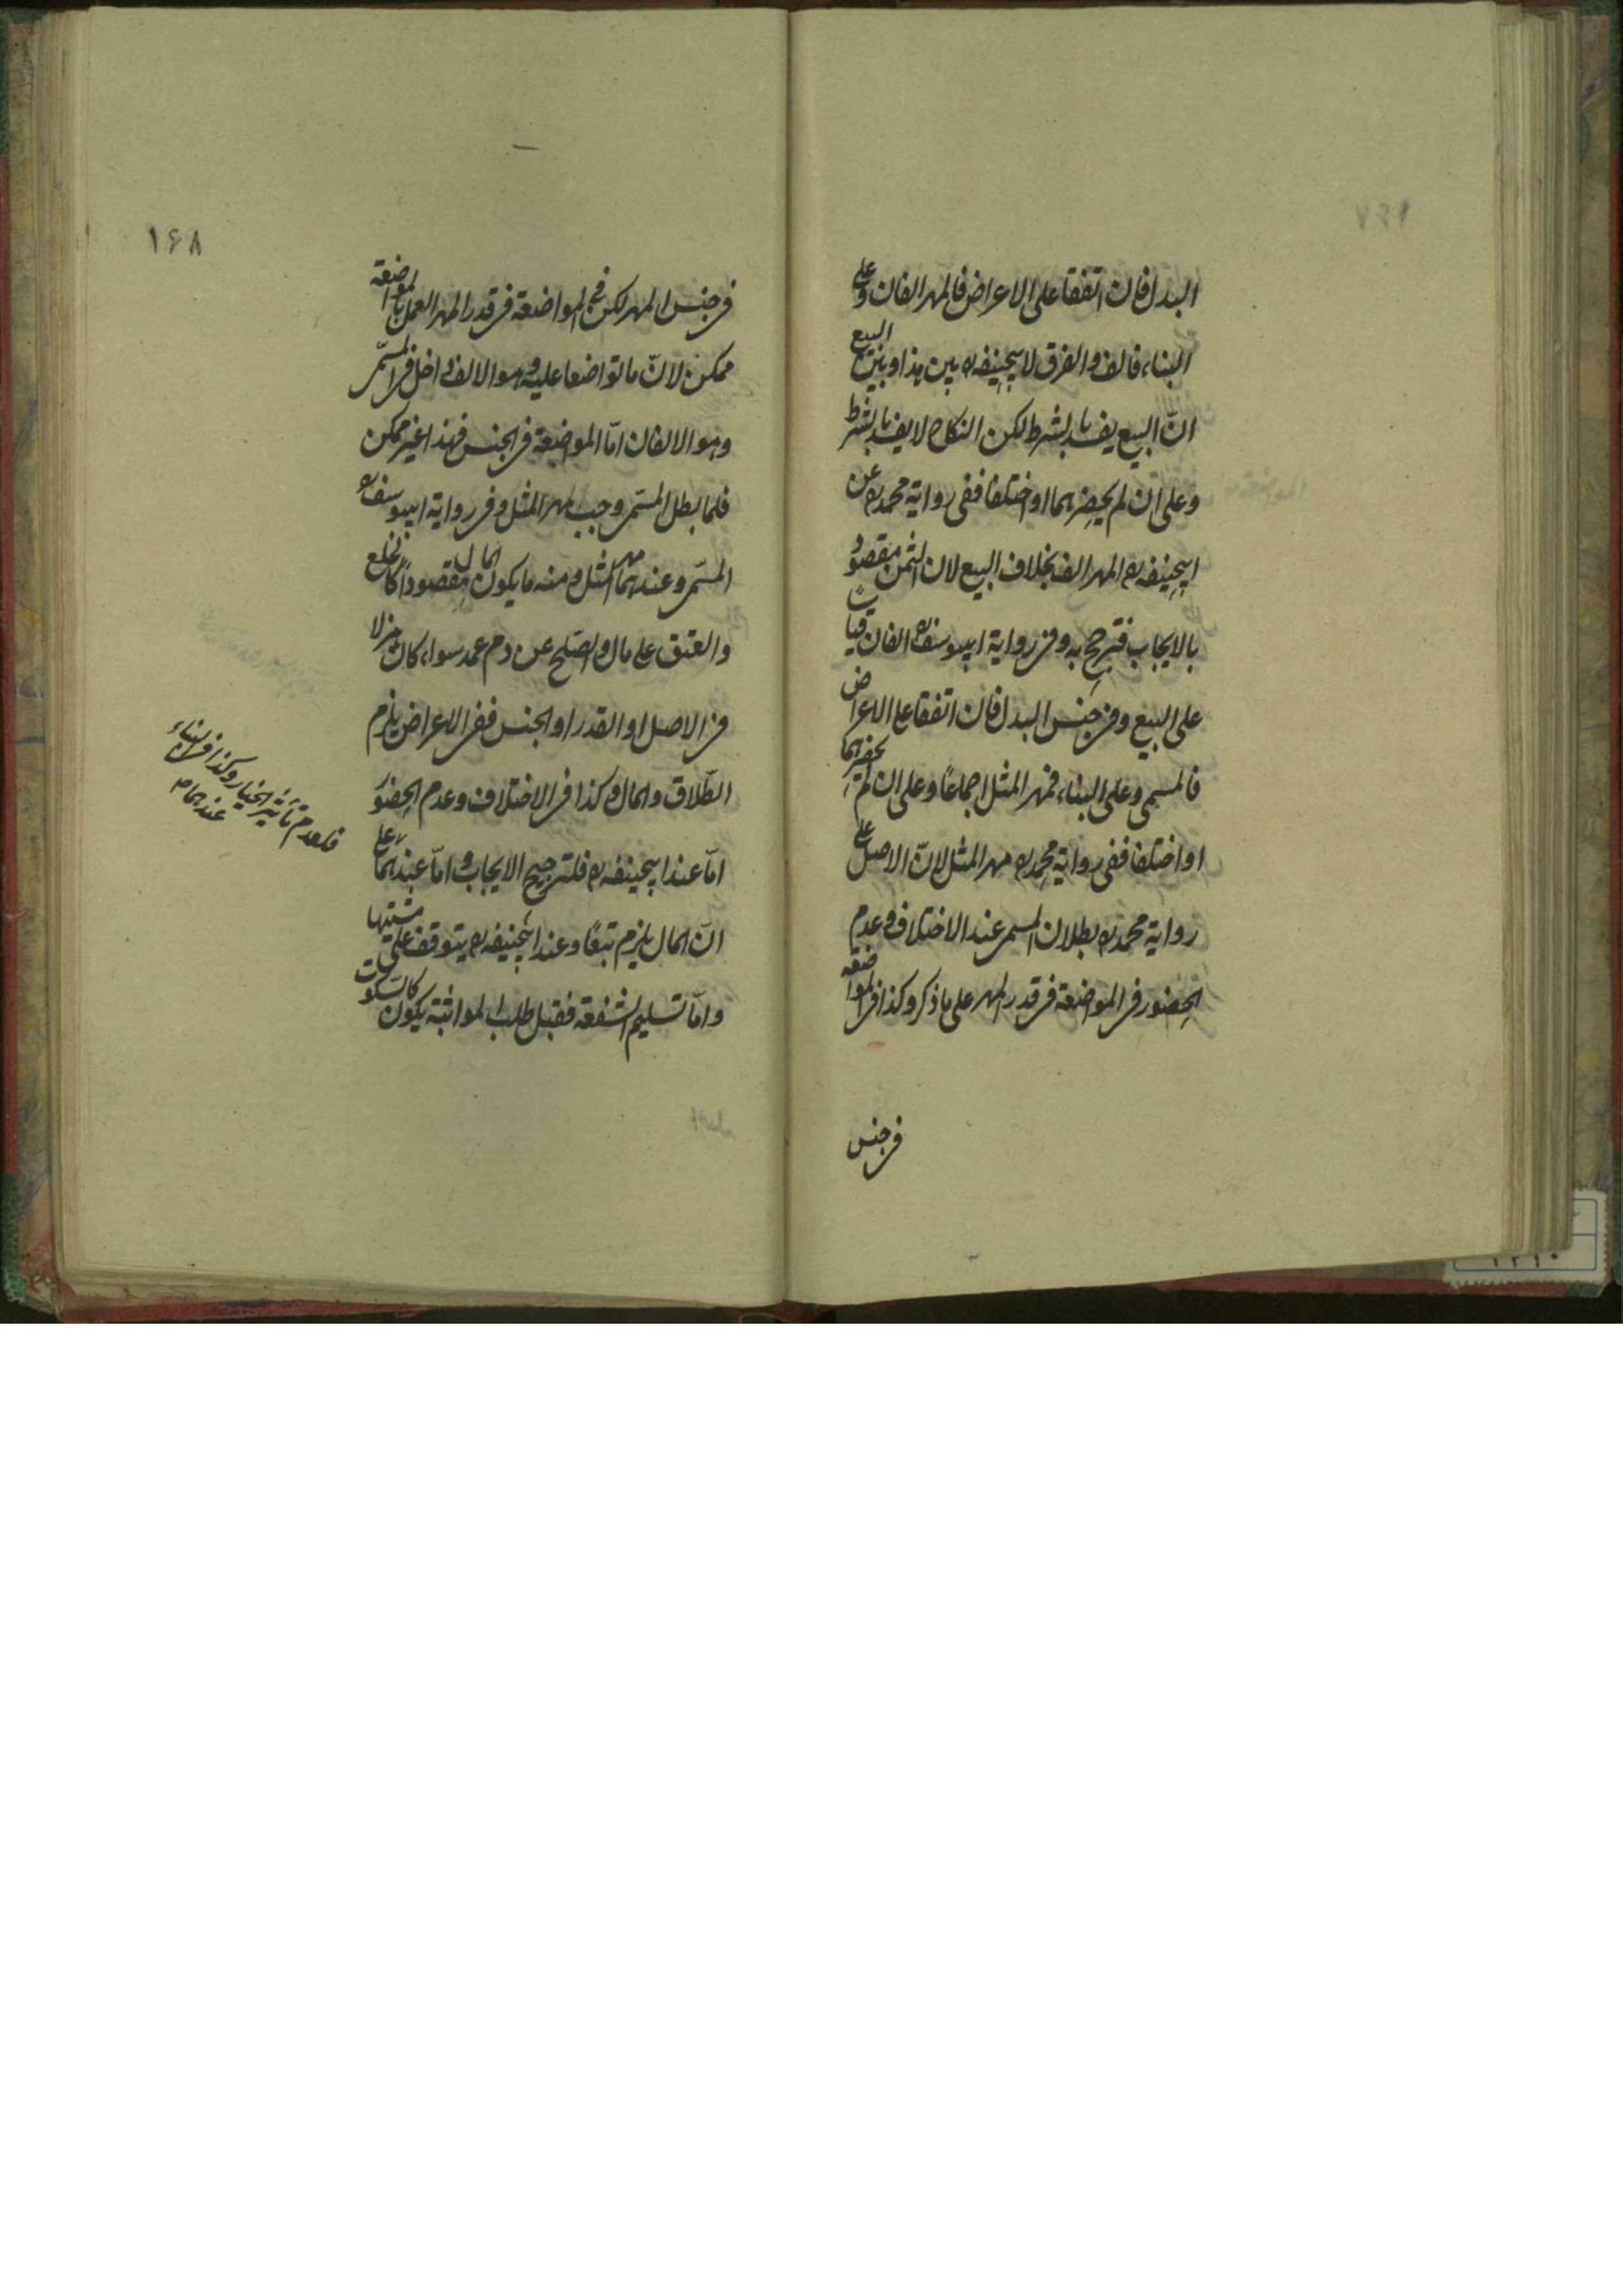 البدل فان اتفقا على الاعراض فالمهر الفان وعلى
البناء فالف والفرق لابيحنيفه ره بين هذا وبين البيع
انّ البيع يفسد بالشرط لكن النكاح لا يفسد بالشرط
وعلى ان لم يحضرهما او اختلفا ففى رواية محمد ره عن
ابيحنيفه ره المهر الف بخلاف البيع لان الثمن مقصود
بالايجاب فترجح به وفى رواية ابيوسف ره الفان قياسا
على البيع وفى جنس البدل فان اتفقا على الاعراض
فالمسمى وعلى البناء فمهر المثل اجماعًا وعلى ان لم يحضرهما
او اختلفا ففى رواية محمد ره مهر المثل لانّ الاصل على
رواية محمد ره بطلان المسمى عند الاختلاف وعدم
الحضور فى المواضعة فى قدر المهر على ما ذكر وكذا فى المواضعه
فى جنس
١۶٨
فى جنس المهر لكن فى المواضعة فى قدر المهر العمل بالمواضعة
ممكن لانّ ما تواضعا عليه وهو الالف داخل فى المسمّى
وهو الالفان امّا المواضعة فى الجنس فهذا غير ممكن
فلما بطل المسمّى وجب مهر المثل وفى رواية ابيوسف ره
المسمّى وعندهما مهر المثل ومنه ما يكون المال مقصوداً كالخلع
والعتق على مال والصّلح عن دم عمد سواء كان هزلا
فى الاصل او القدر او الجنس ففى الاعراض يلزم
الطّلاق والمال وكذا فى الاختلاف وعدم الحضور
امّا عند ابيحنيفه ره فلترجيح الايجاب وامّا عندهما
انّ المال يلزم تبعًا وعند ابيحنيفه ره يتوقف على مشيّتها
وامّا تسليم الشفعة فقبل طلب المواثبة يكون كالسّكوت
فلعدم تأثير الخيار وكذا فى البناء
عندهما